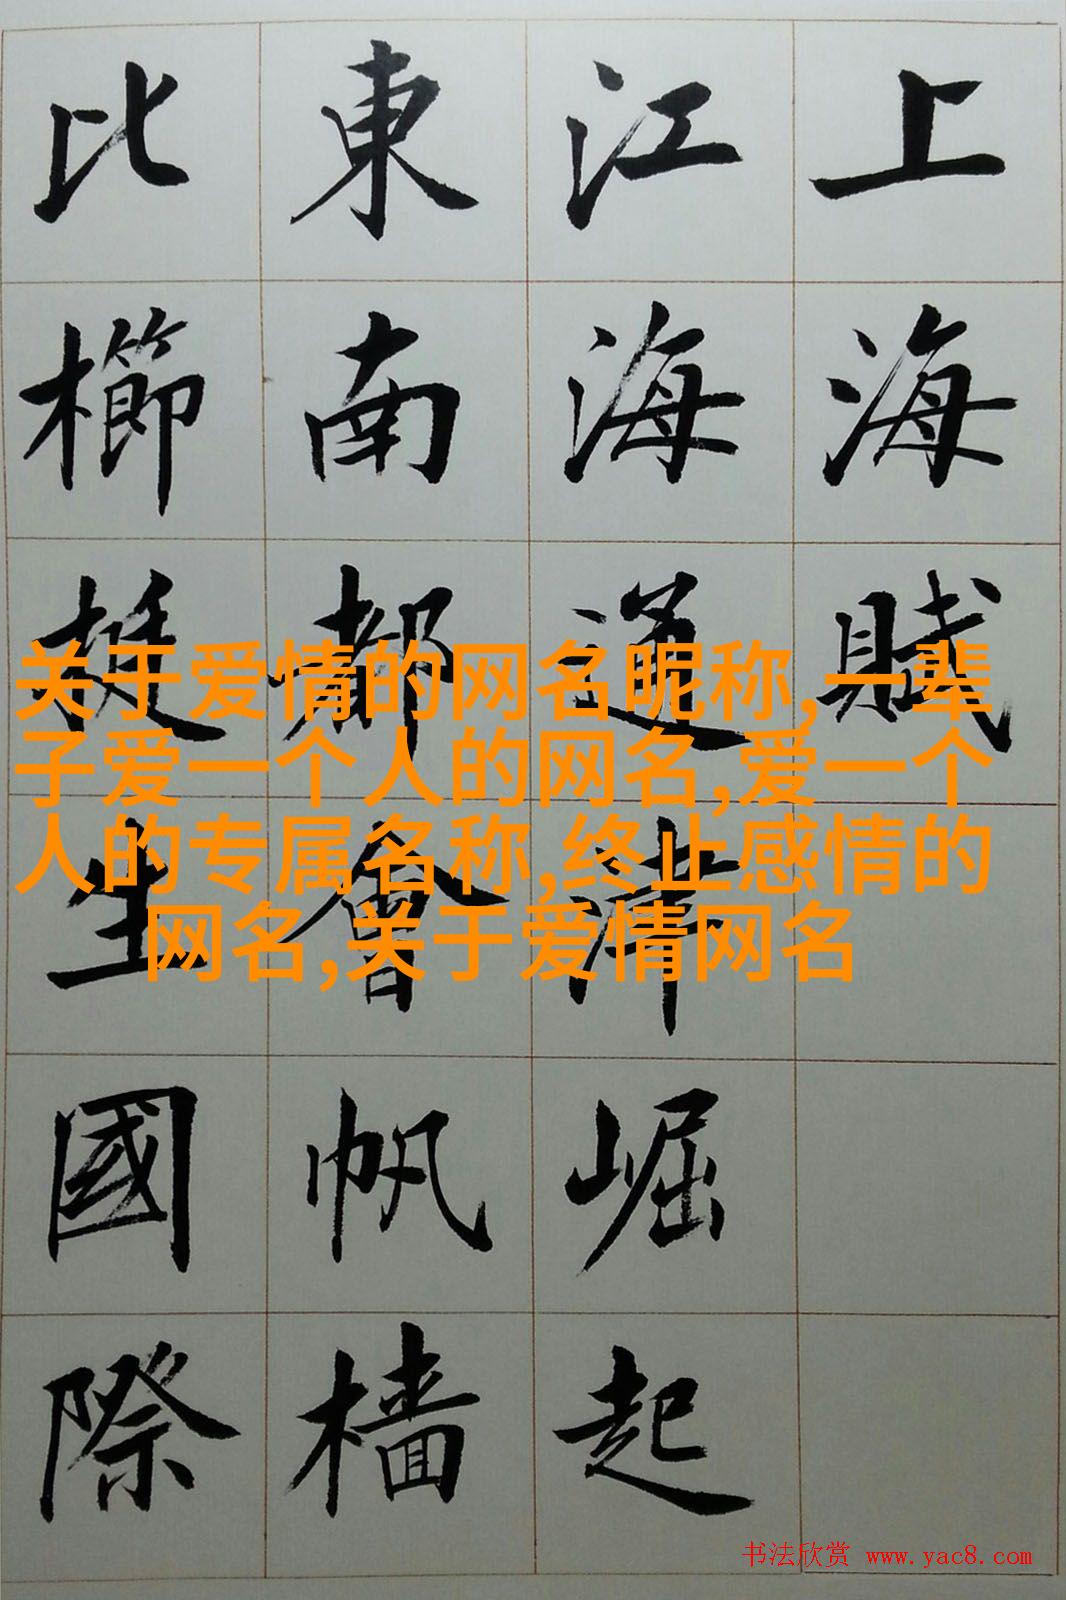 上海賦
江海通津崛起
東南都會帆檣
比櫛挺生國際
关于爱情的网名昵称,一辈
子爱一个人的网名,爱一个
人的专属名称,终止感情的
网名,关于爱情网名
书法欣赏 www.yac8.com